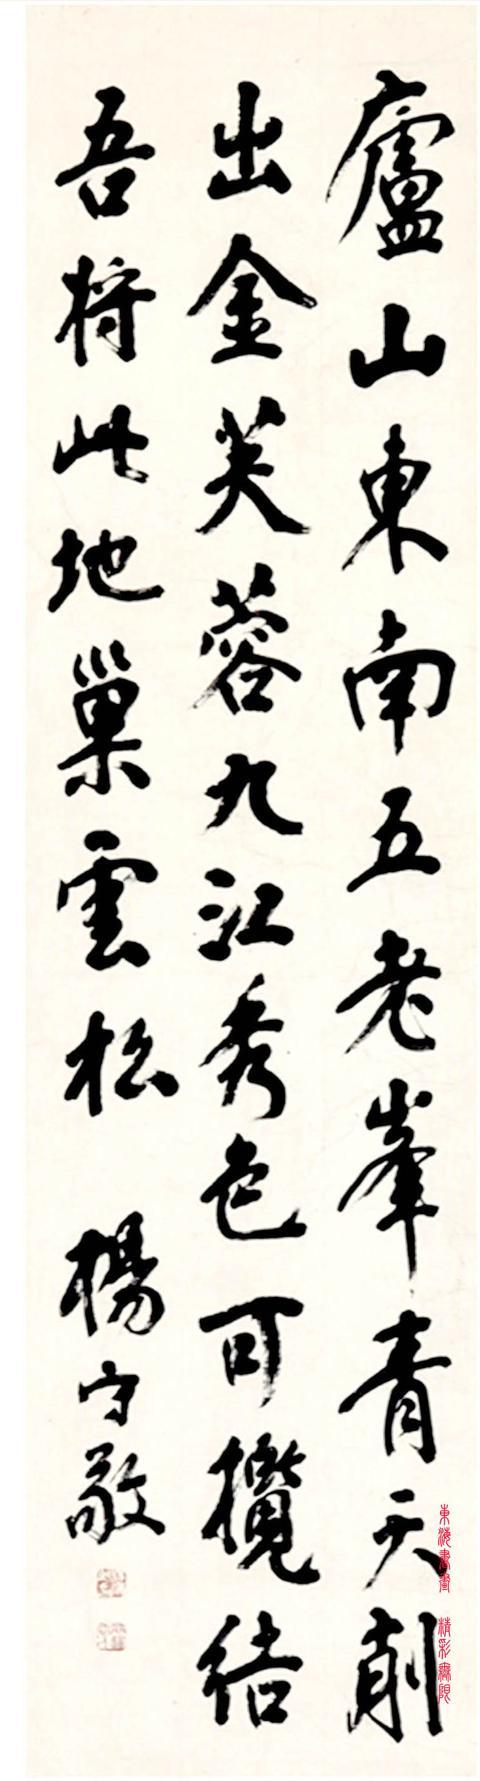 廬山東南五老峯青天削
出金芙蓉九江秀色可攬結
吾将此地巢雲松
楊守敬
東海書畫 精彩無限